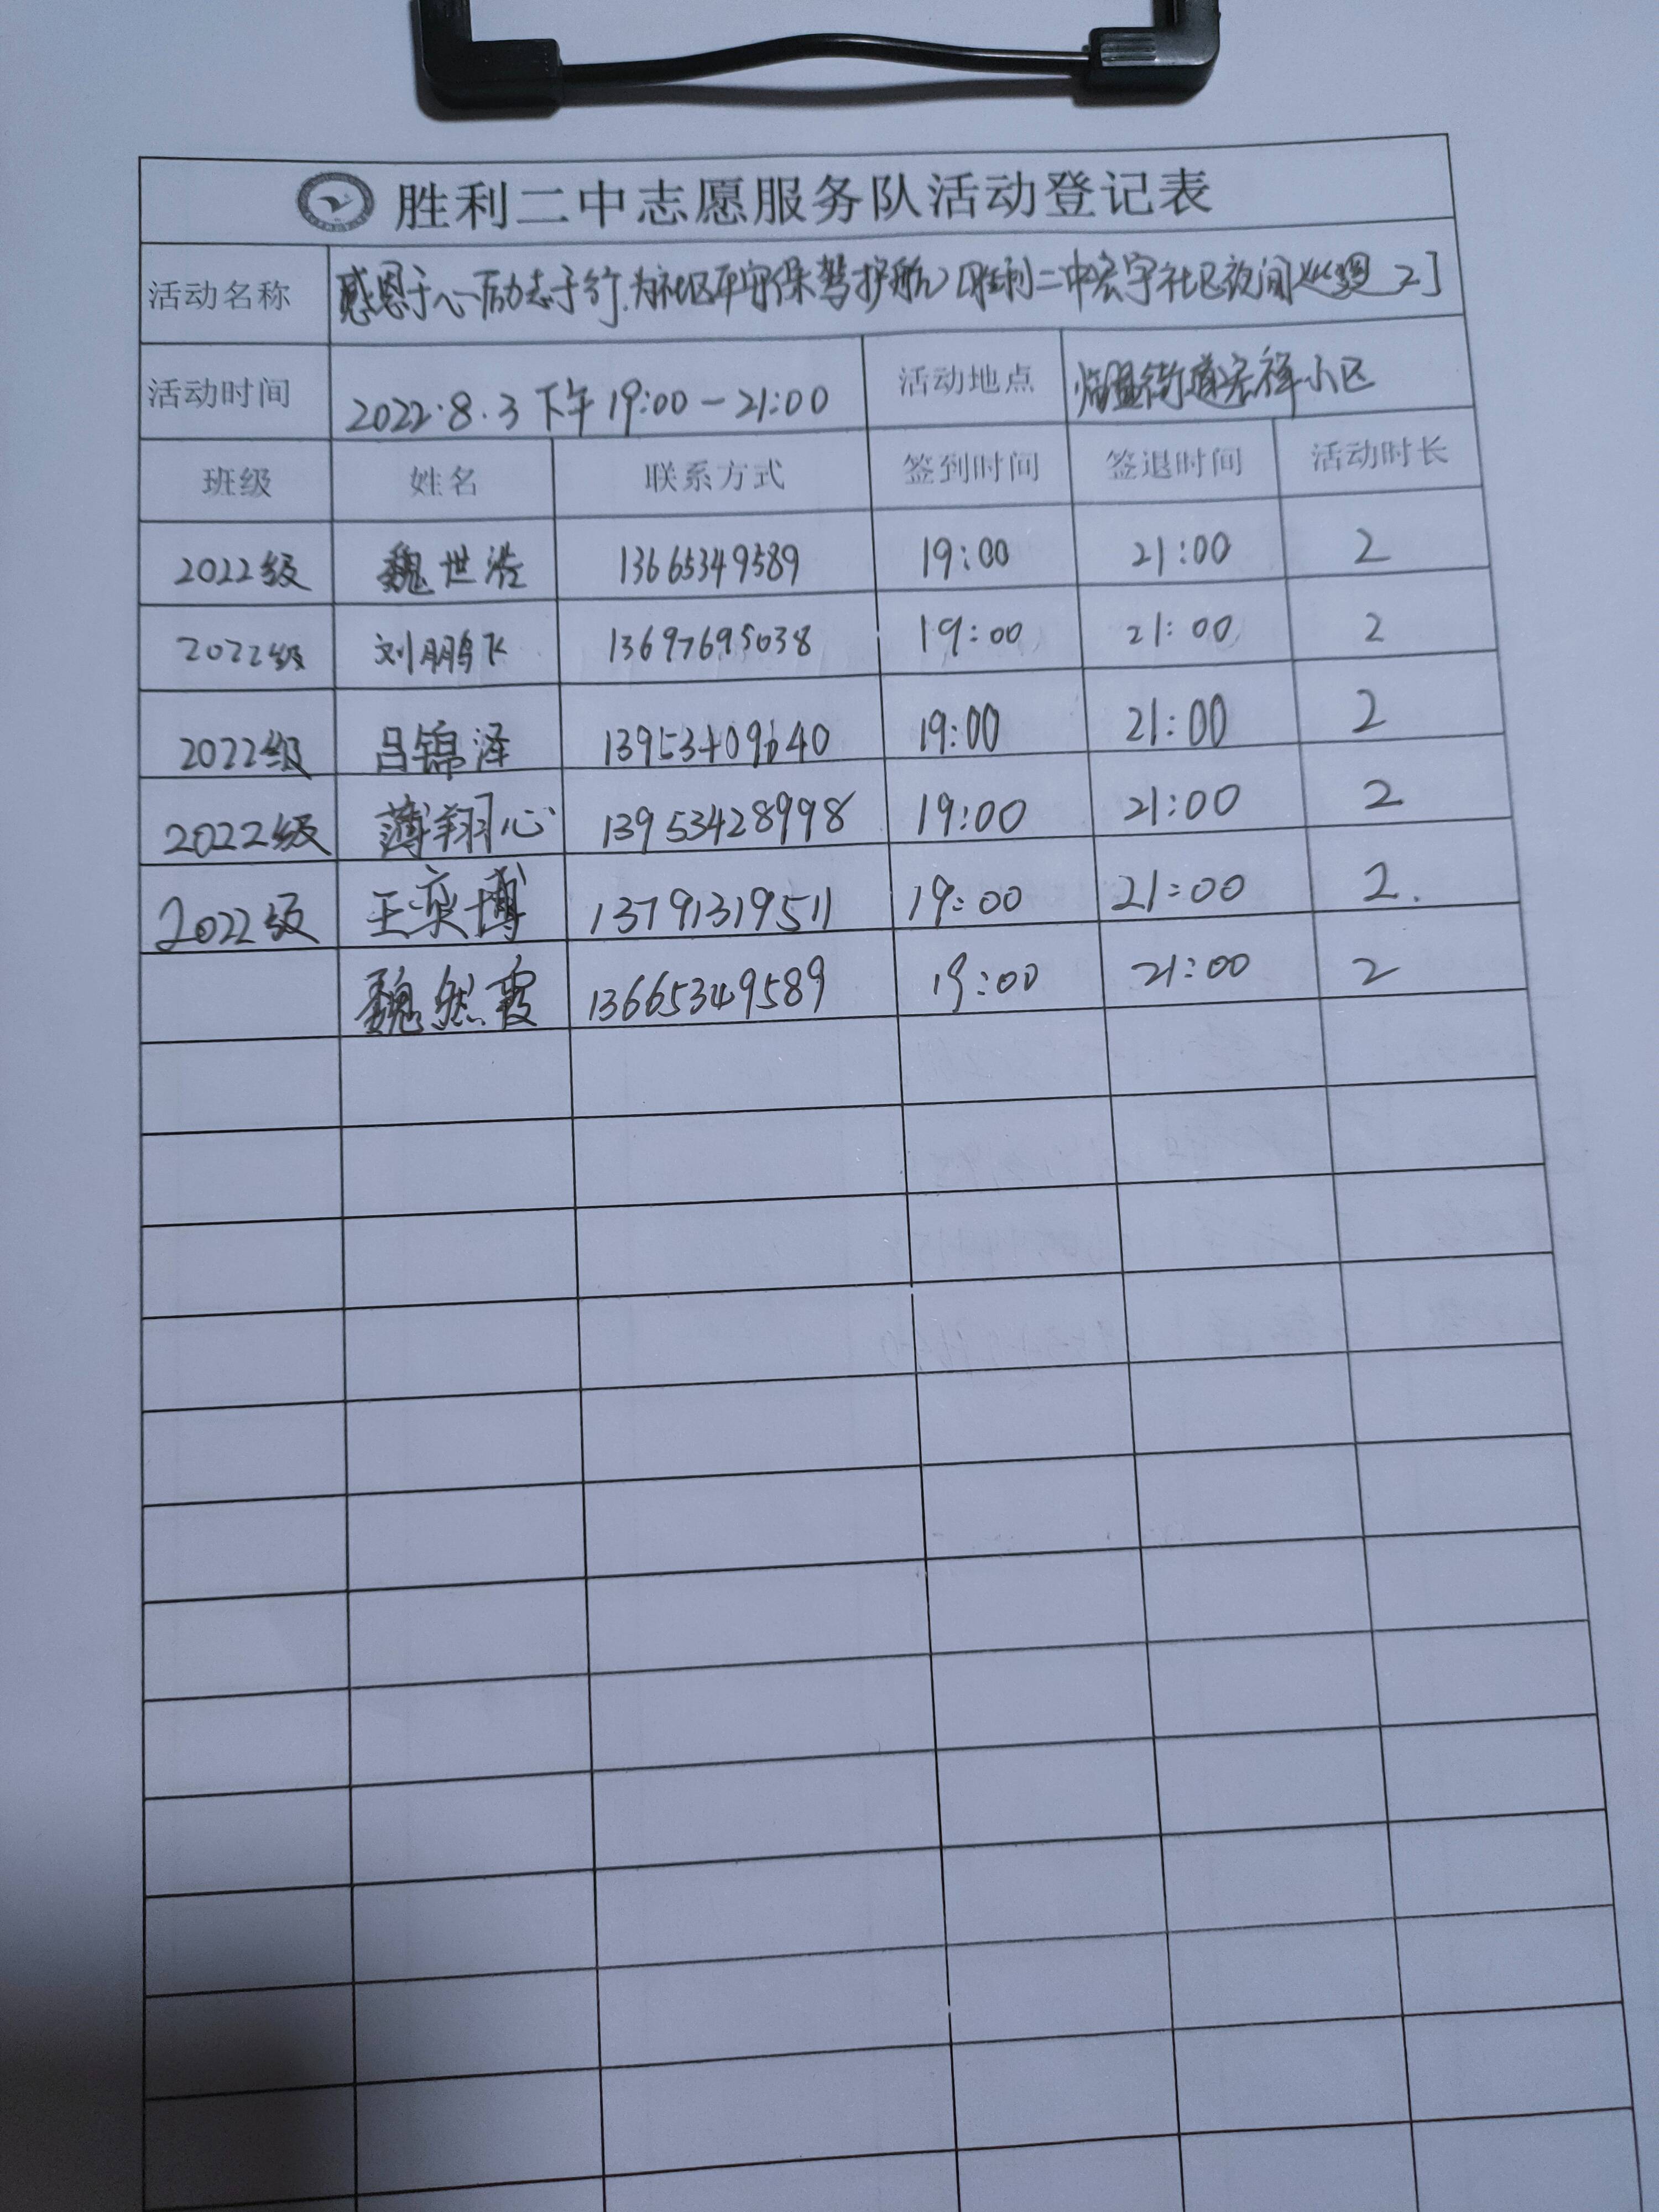 胜利二中志愿服务队活动登记表
活动名称 感恩于心励志于行.为社区平安保驾护航》[胜利二中宏宇社区夜间巡逻 2]
活动时间 2022.8.3 下午 19:00-21:00 活动地点 临盘街道宏祥小区
班级 姓名 联系方式 签到时间 签退时间 活动时长
2022级 魏世浩 13665349589 19:00 21:00 2
2022级 刘鹏飞 13697695038 19:00 21:00 2
2022级 吕锦泽 13953409640 19:00 21:00 2
2022级 薄翔心 13953428998 19:00 21:00 2
2022级 王奕博 13791319511 19:00 21:00 2.
魏然霞 13665349589 19:00 21:00 2